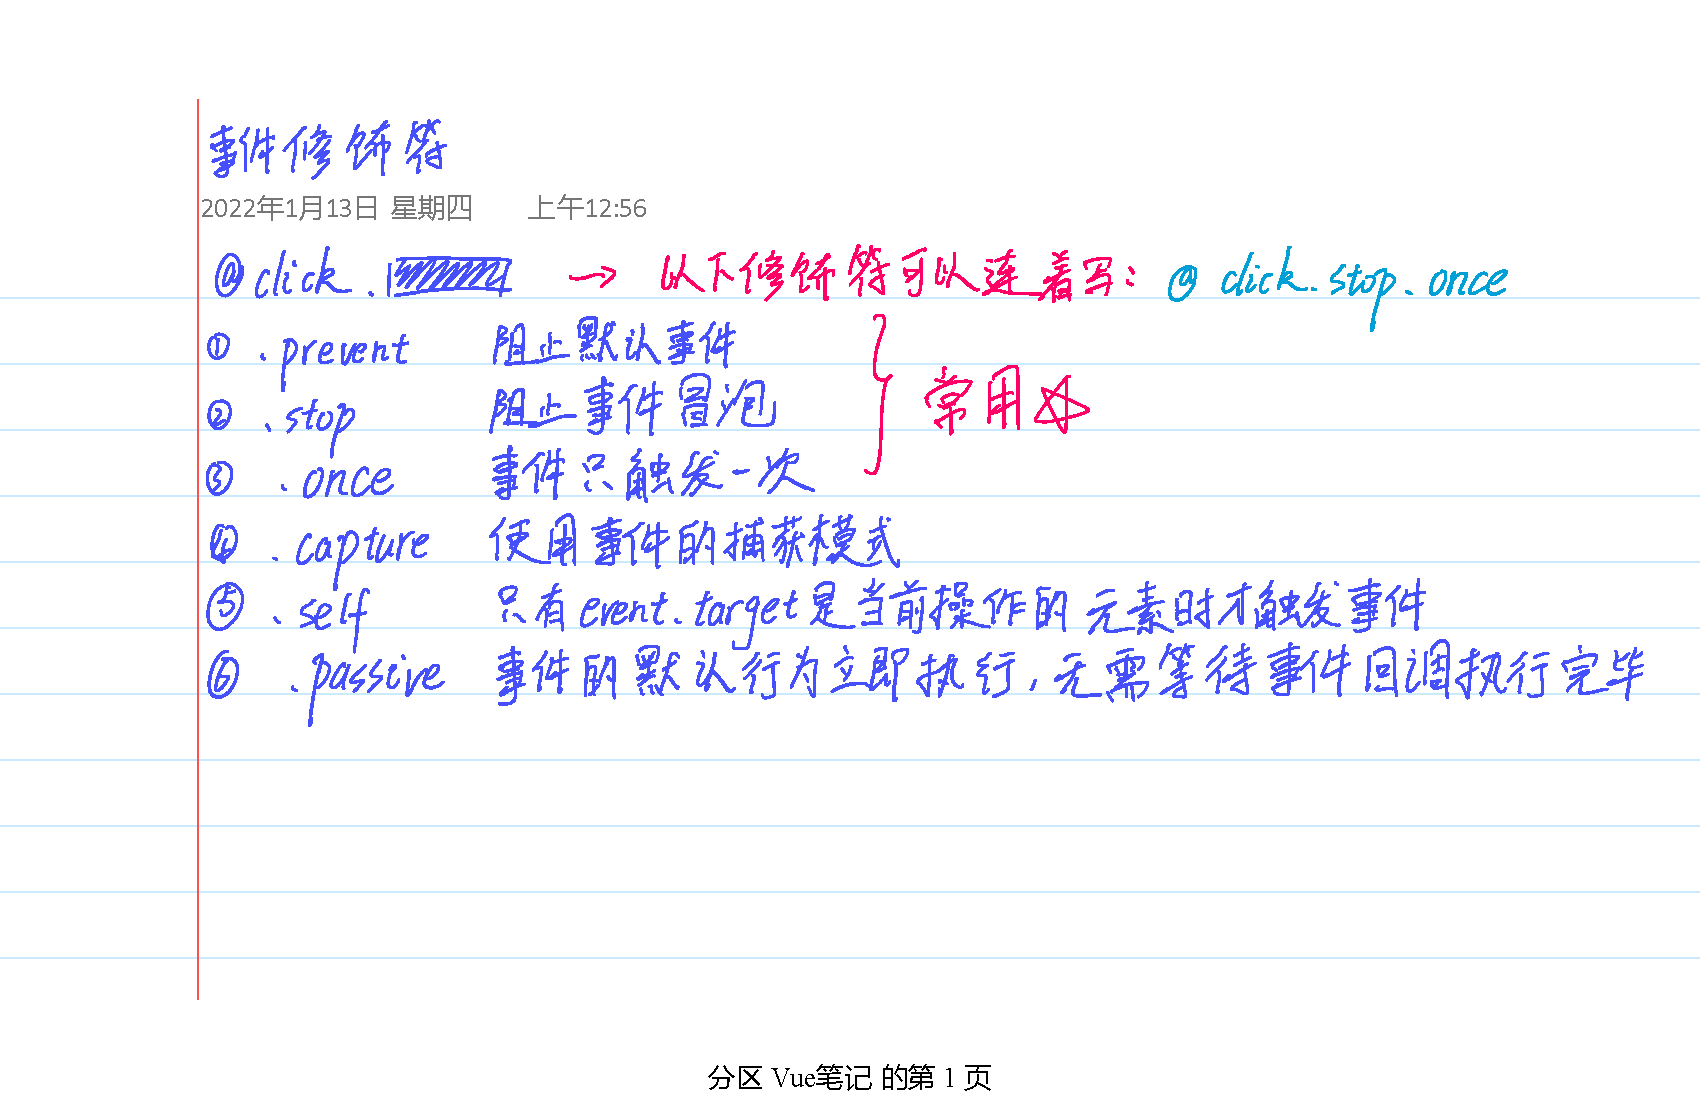 事件修饰符
2022年1月13日 星期四 上午12:56
@click. → 以下修饰符可以连着写: @click.stop.once
① .prevent 阻止默认事件
② .stop 阻止事件冒泡
常用☆
③ .once 事件只触发一次
④ .capture 使用事件的捕获模式
⑤ .self 只有event.target是当前操作的元素时才触发事件
⑥ .passive 事件的默认行为立即执行,无需等待事件回调执行完毕
分区 Vue笔记 的第 1 页